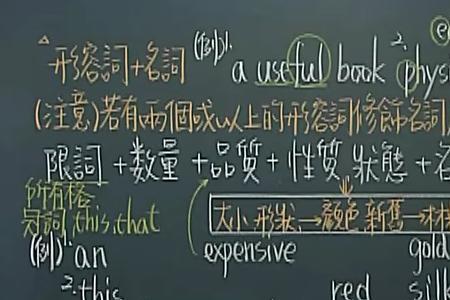 △形容詞+名詞 (例)1. a useful book 2. phys
(注意)若有兩個或以上的形容詞修飾名詞,
限詞+數量+品質+性質 狀態+名
所有格
冠詞,this,that
大小 形狀→顏色 新舊→材
(例)1. an expensive gold
2. this red silk